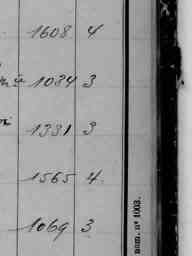 1608 4
1084 3
1331 3
1565 4
1069 3
nom. nº 1003.